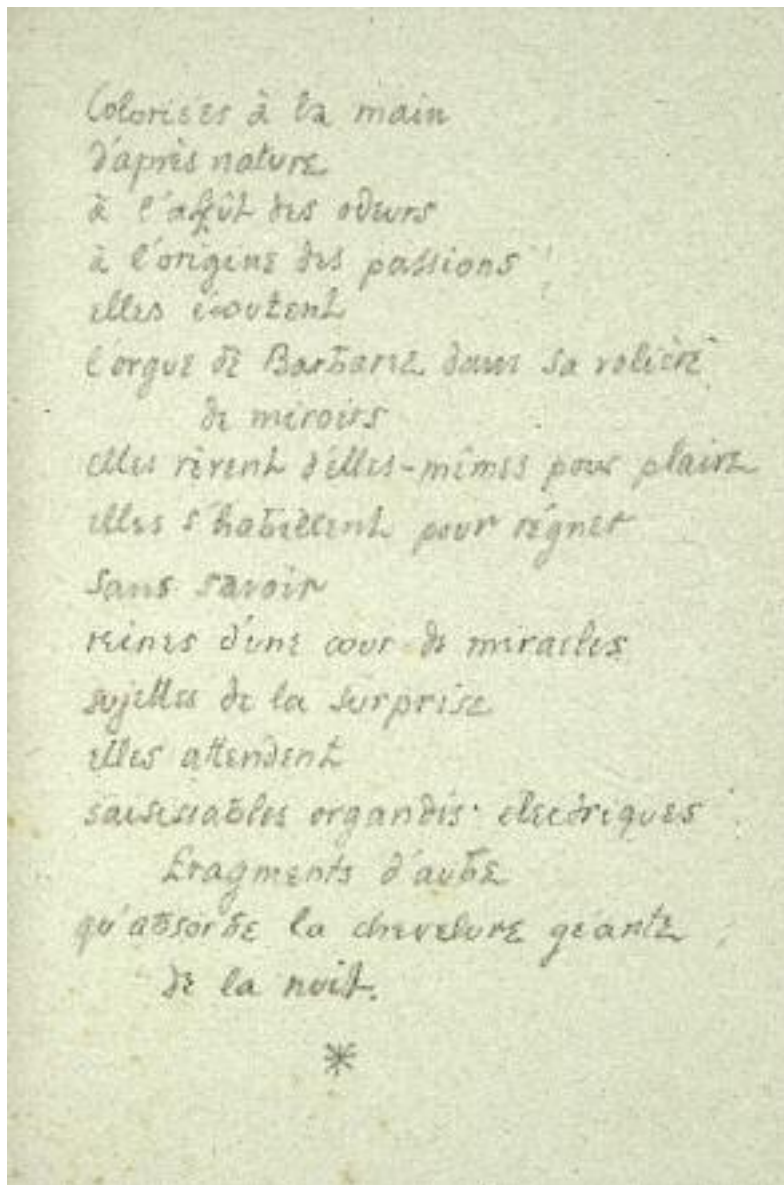 Coloriées à la main
d'après nature
à l'affût des odeurs
à l'origine des passions
elles écoutent
l'orgue de Barbarie dans sa volière
de miroirs
elles rêvent d'elles-mêmes pour plaire
elles s'habillent pour régner
sans savoir
reines d'une cour de miracles
sujettes de la surprise
elles attendent
saisissables organdis électriques
fragments d'aube
qu'absorbe la chevelure géante
de la nuit.
*